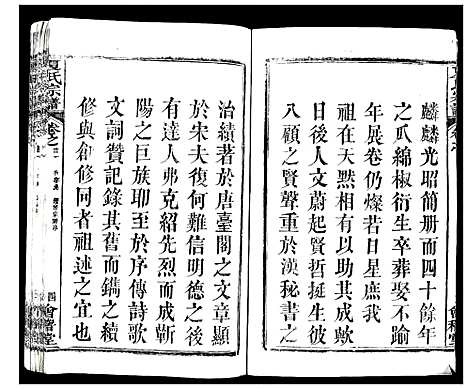 麟麟光昭簡册而四十餘年
之瓜綿椒衍生卒葬娶不踰
年展卷仍燦若日星庶我
祖在天黙相有以共成歟
日後人文蔚起賢哲挺生
八顧之賢聲重於漢秘書之
治績著於唐臺閣之文章顯
於宋夫復何難信明德之後
有達人弗克紹先烈而成蘄
陽之巨族耶至於序傳詩歌
文詞贊記錄其舊而鐫之續
修與創修同者祖述之宜也
氏宗譜
卷之
四
會稽堂